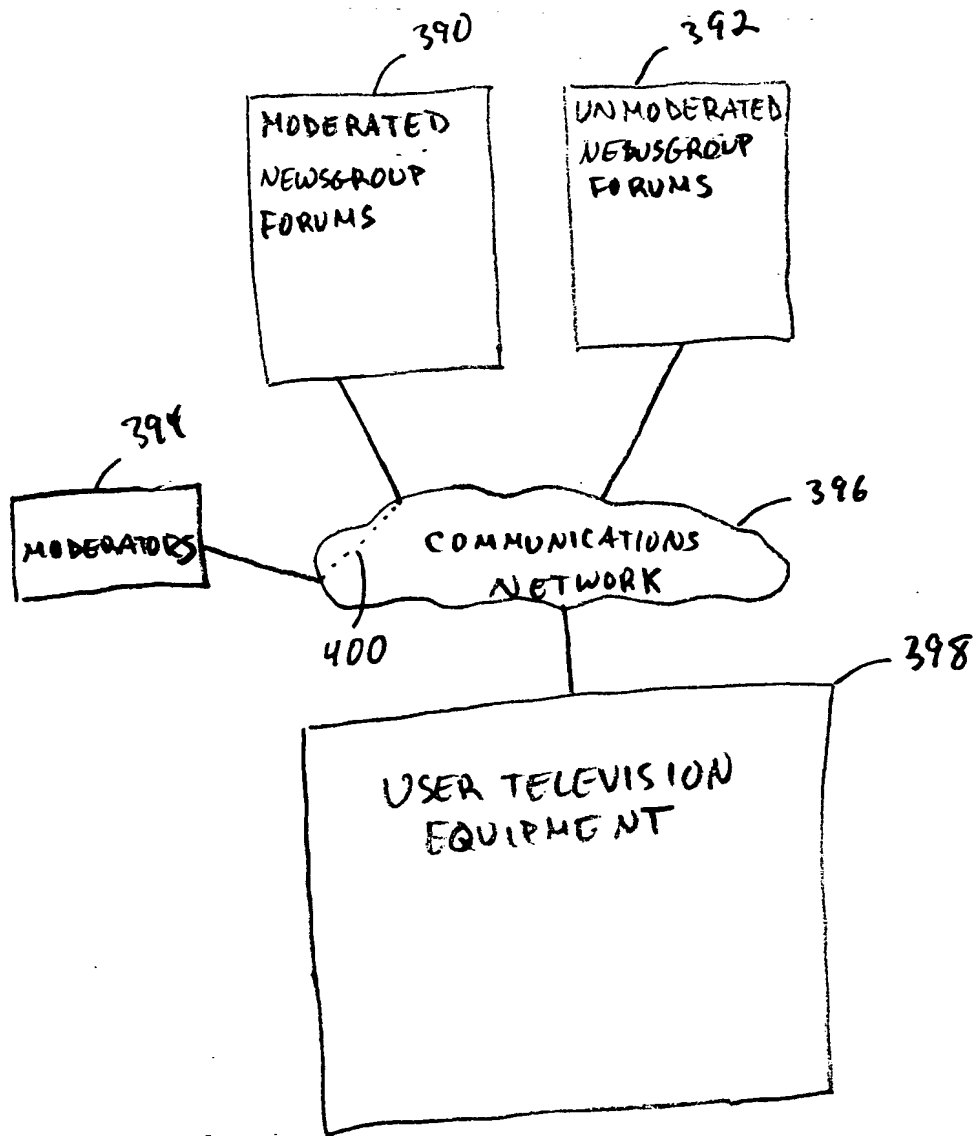 390
392
MODERATED
NEWSGROUP
FORUMS
UNMODERATED
NEWSGROUP
FORUMS
394
MODERATORS
396
COMMUNICATIONS
NETWORK
400
398
USER TELEVISION
EQUIPMENT